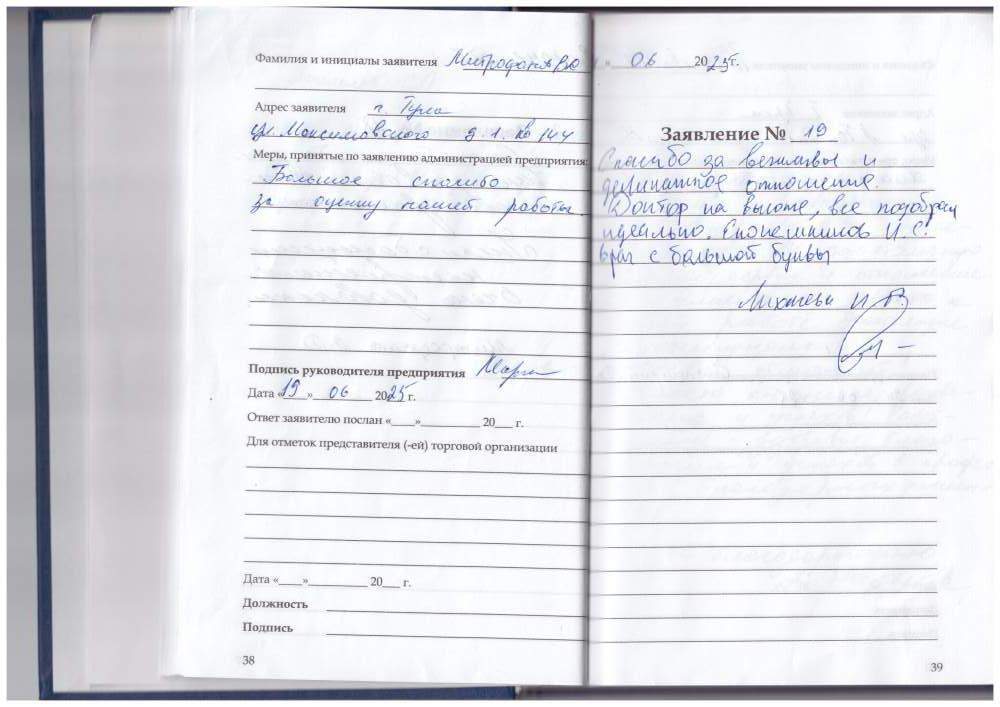 Фамилия и инициалы заявителя Митрофанов В.Ю
Адрес заявителя г. Тула
ул. Максимовского д. 1. кв 144
Меры, принятые по заявлению администрацией предприятия:
Большое спасибо
за оценку нашей работы.
Подпись руководителя предприятия
Дата «19» 06 2025 г.
Ответ заявителю послан «____»__________ 20___ г.
Для отметок представителя (-ей) торговой организации
Дата «____»__________ 20___ г.
Должность
Подпись
38
» 06 2025г.
Заявление № 19
Спасибо за вежливое и
деликатное отношение.
Доктор на высоте, все подобрали
идеально. И.С.
врач с большой буквы
И В.
39